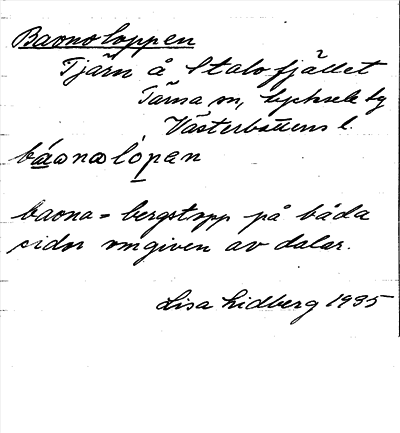 Baonoloppen
Tjärn å Stalofjället
Tärna sn, Lycksele lg
Västerbottens l.
báωnωlòpan
baona = bergstopp på båda
sidor omgiven av dalar.
Lisa Lidberg 1935